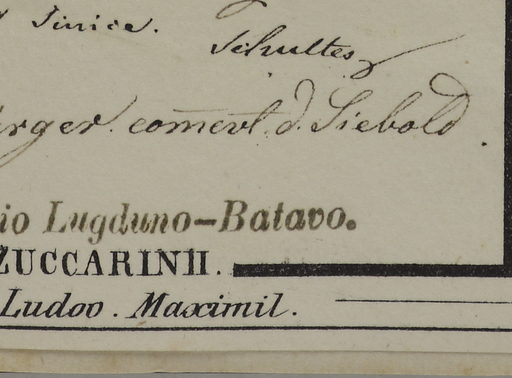 Schultes
comērl. d. Siebold.
io Lugduno-Batavo.
ZUCCARINII.
Ludov. Maximil.